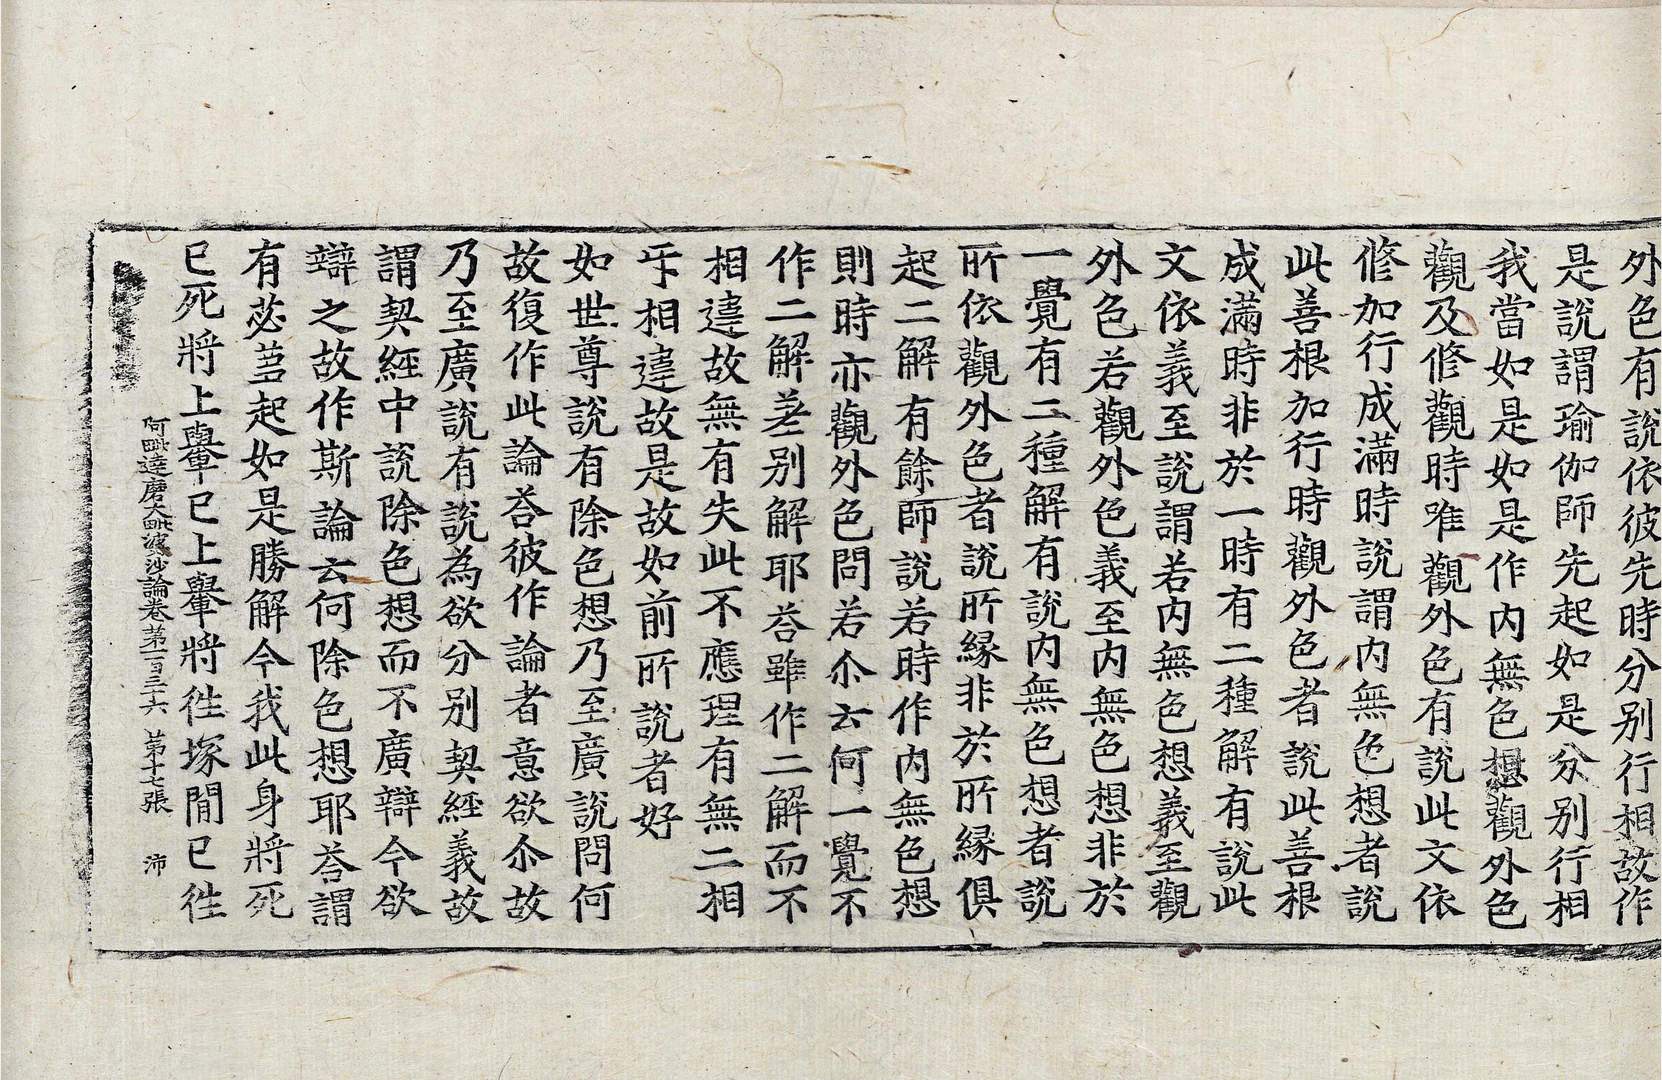 外色有說依彼先時分别行相故作
是說謂瑜伽師先起如是分别行相
我當如是如是作内無色想觀外色
觀及修觀時唯觀外色有說此文依
修加行成滿時說謂内無色想者說
此善根加行時觀外色者說此善根
成滿時非於一時有二種解有說此
文依義至說謂若内無色想義至觀
外色若觀外色義至内無色想非於
一覺有二種解有說内無色想者說
所依觀外色者說所縁非於所縁俱
起二解有餘師說若時作内無色想
則時亦觀外色問若尒云何一覺不
作二解差别解耶荅雖作二解而不
相違故無有失此不應理有無二相
𠄔相違故是故如前所說者好
如世尊說有除色想乃至廣說問何
故復作此論荅彼作論者意欲尒故
乃至廣說有說為欲分别契經義故
謂契經中說除色想而不廣辯今欲
辯之故作斯論云何除色想耶荅謂
有苾蒭起如是勝解今我此身將死
已死將上轝已上轝將徃塚間已徃
阿毗達磨大毗婆沙論卷第一百三十六　第十七張　沛